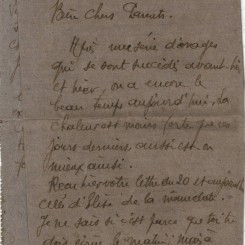 Bien Chers Parents.
Après une série d'orages
qui se sont succédés avant-hier
et hier, on a encore le
beau temps aujourd'hui, la
chaleur est moins forte que ces
jours derniers aussi est-on
mieux ainsi.
Reçu hier votre lettre du 20 et aujourd'hui
celle d'
Je ne sais si c'est parce que
le matin, mais